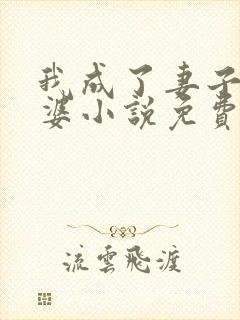 我成了妻子
婆小説免費
流雲飛渡